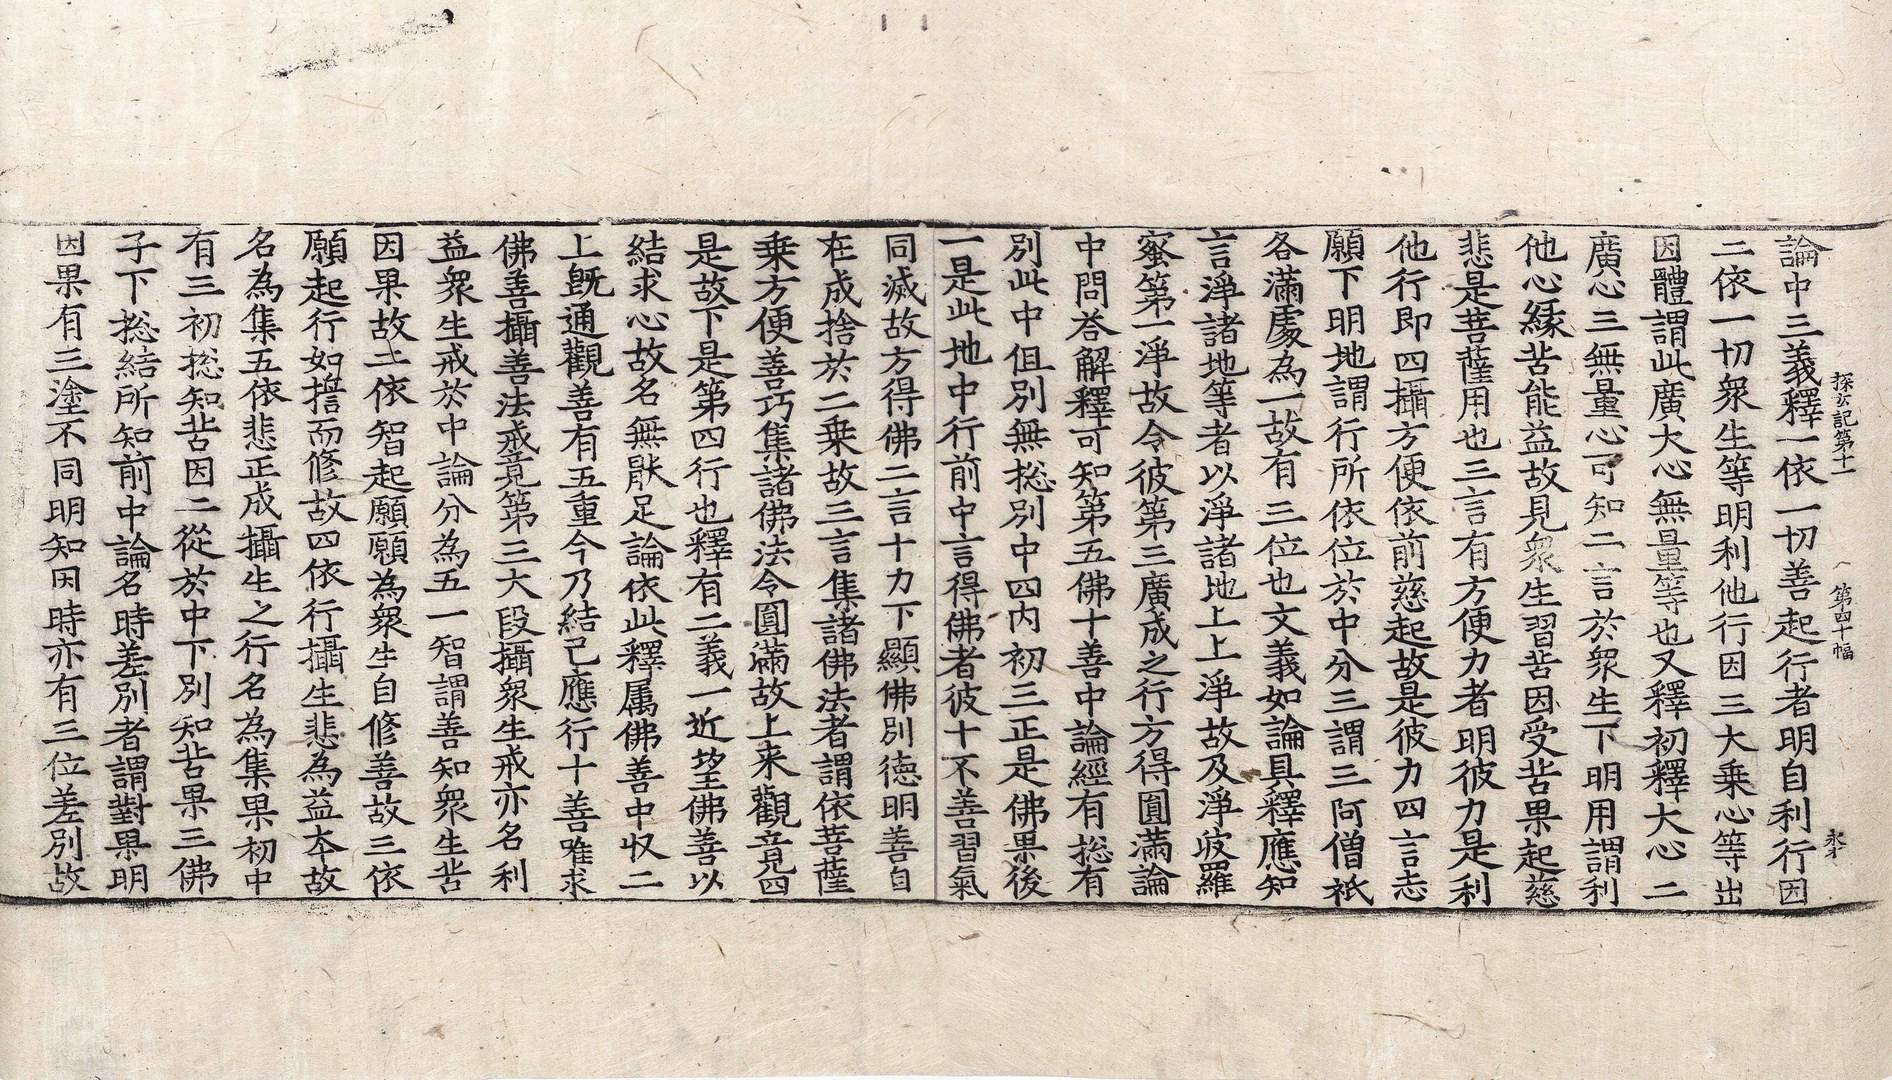 探玄記第十一 第四十幅 永才
論中三義釋一依一切善起行者明自利行因
二依一切衆生等明利他行因三大乗心等出
因體謂此廣大心無量等也又釋初釋大心二
廣心三無量心可知二言於衆生下明用謂利
他心縁苦能益故見衆生習苦因受苦果起慈
悲是菩薩用也三言有方便力者明彼力是利
他行即四攝方便依前慈起故是彼力四言志
願下明地謂行所依位於中分三謂三阿僧祇
各滿處為一故有三位也文義如論具釋應知
言淨諸地等者以淨諸地上上淨故及淨波羅
蜜第一淨故令彼第三廣成之行方得圓滿論
中問答解釋可知第五佛十善中論經有揔有
別此中但別無揔別中四內初三正是佛果後
一是此地中行前中言得佛者彼十不善習氣
同滅故方得佛二言十力下顯佛別德明善自
在成捨於二乗故三言集諸佛法者謂依菩薩
乗方便善巧集諸佛法令圓滿故上来觀竟四
是故下是第四行也釋有二義一近望佛善以
結求心故名無猒足論依此釋属佛善中収二
上旣通觀善有五重今乃結已應行十善唯求
佛善攝善法戒竟第三大段攝衆生戒亦名利
益衆生戒於中論分為五一智謂善知衆生苦
因果故二依智起願願為衆生自修善故三依
願起行如誓而修故四依行攝生悲為益夲故
名為集五依悲正成攝生之行名為集果初中
有三初揔知苦因二從於中下別知苦果三佛
子下揔結所知前中論名時差別者謂對果明
因果有三塗不同明知因時亦有三位差別故